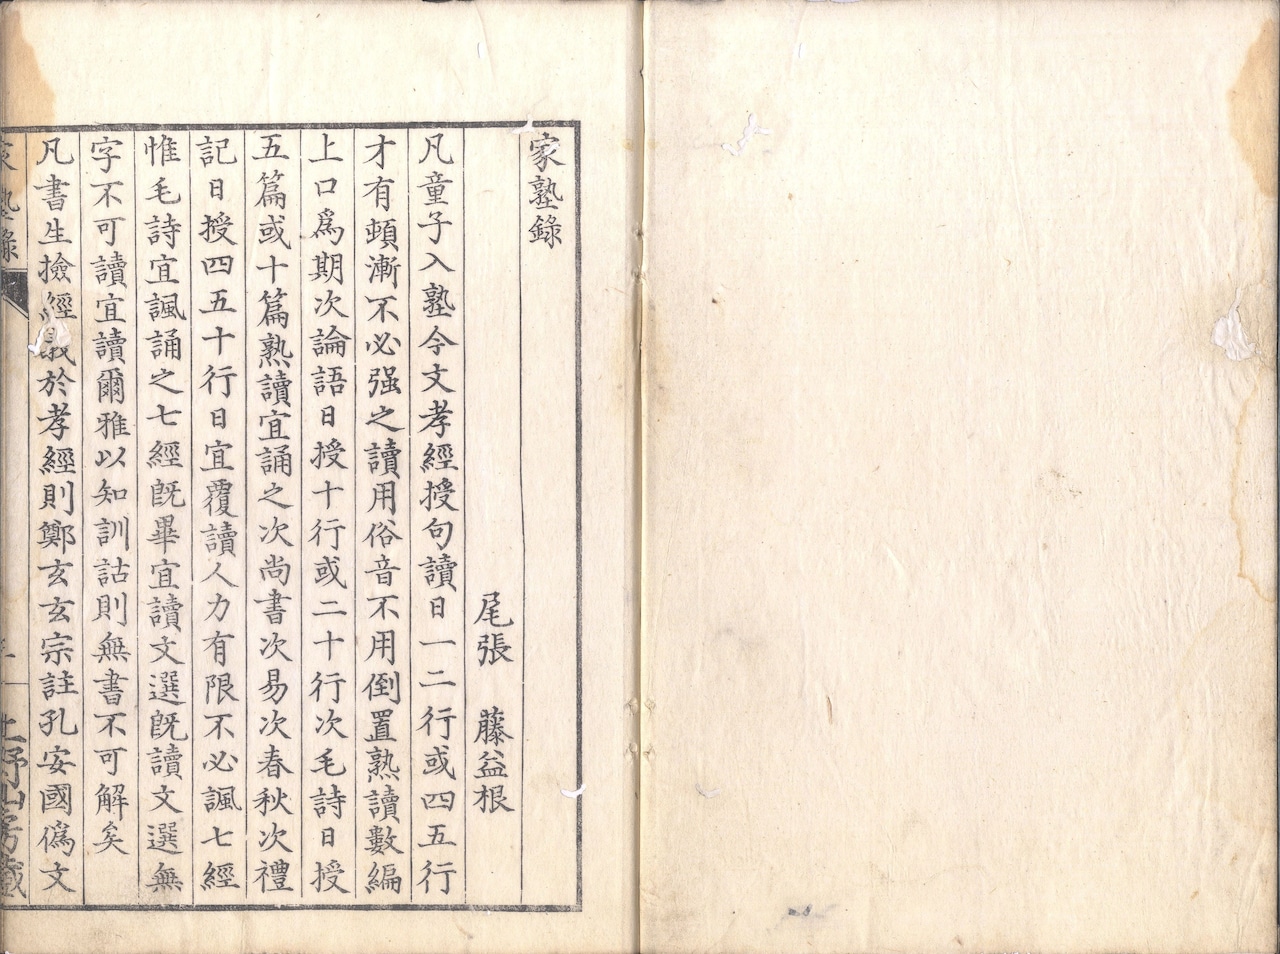 家塾錄
尾張　藤益根
凡童子入塾今文孝經授句讀日一二行或四五行
才有頓漸不必强之讀用俗音不用倒置熟讀數編
上口爲期次論語日授十行或二十行次毛詩日授
五篇或十篇熟讀宜誦之次尚書次易次春秋次禮
記日授四五十行日宜覆讀人力有限不必諷七經
惟毛詩宜諷誦之七經旣畢宜讀文選旣讀文選無
字不可讀宜讀爾雅以知訓詁則無書不可解矣
凡書生撿經義於孝經則鄭玄玄宗註孔安國僞文
家塾錄